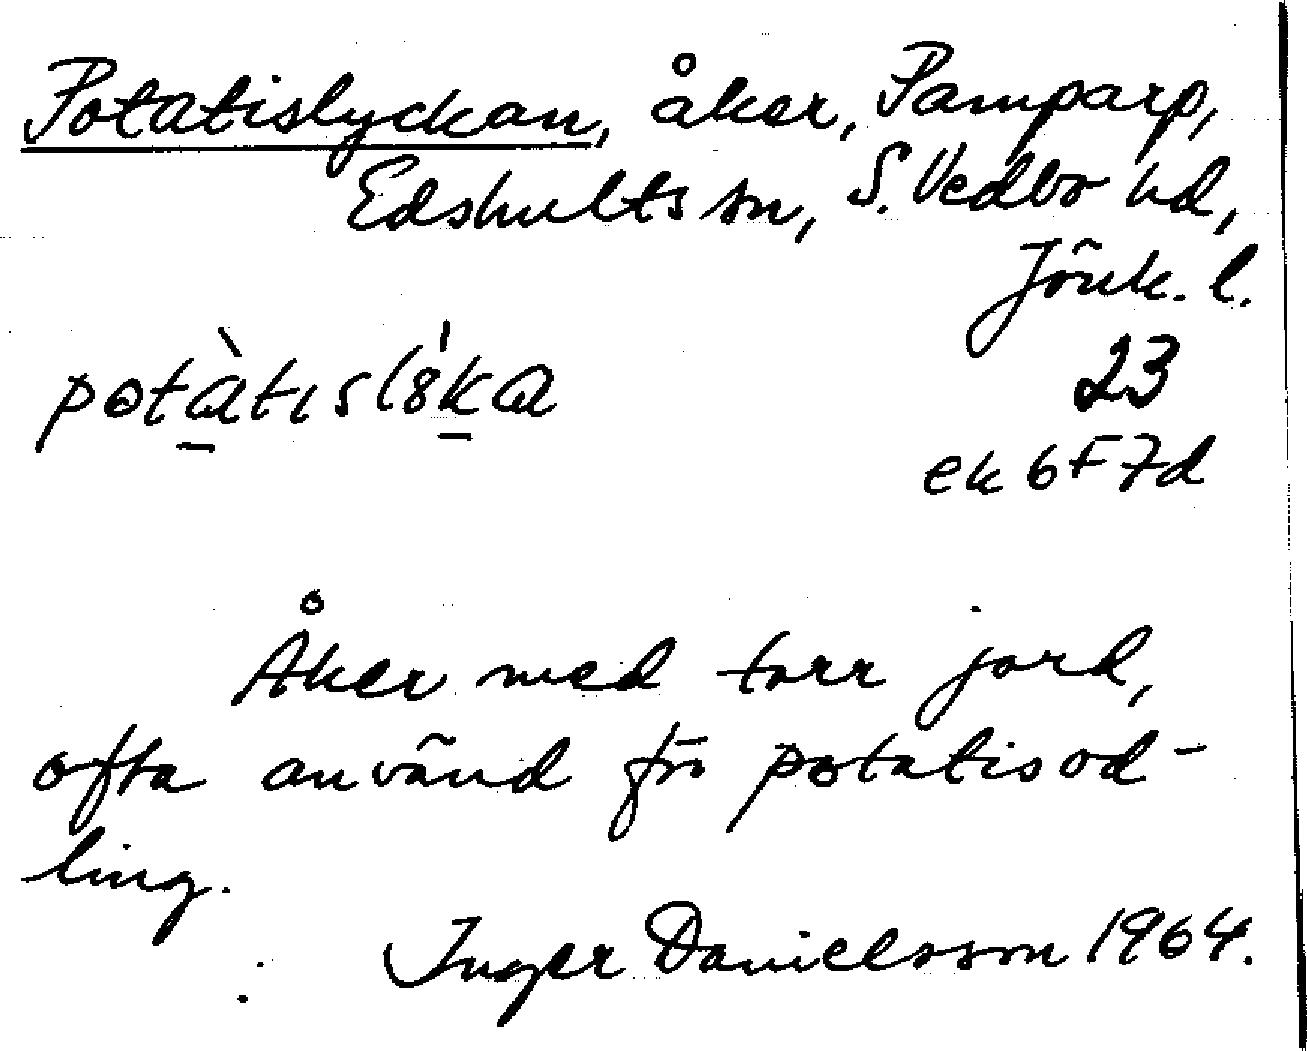 Potatislyckan, åker, Pamparp,
Edshults sn, S. Vedbo hd,
Jönk. l.
potàtıslı8́ka
23
ek 6F7d
Åker med torr jord,
ofta använd för potatisod-
ling.
Inger Danielsson 1964.